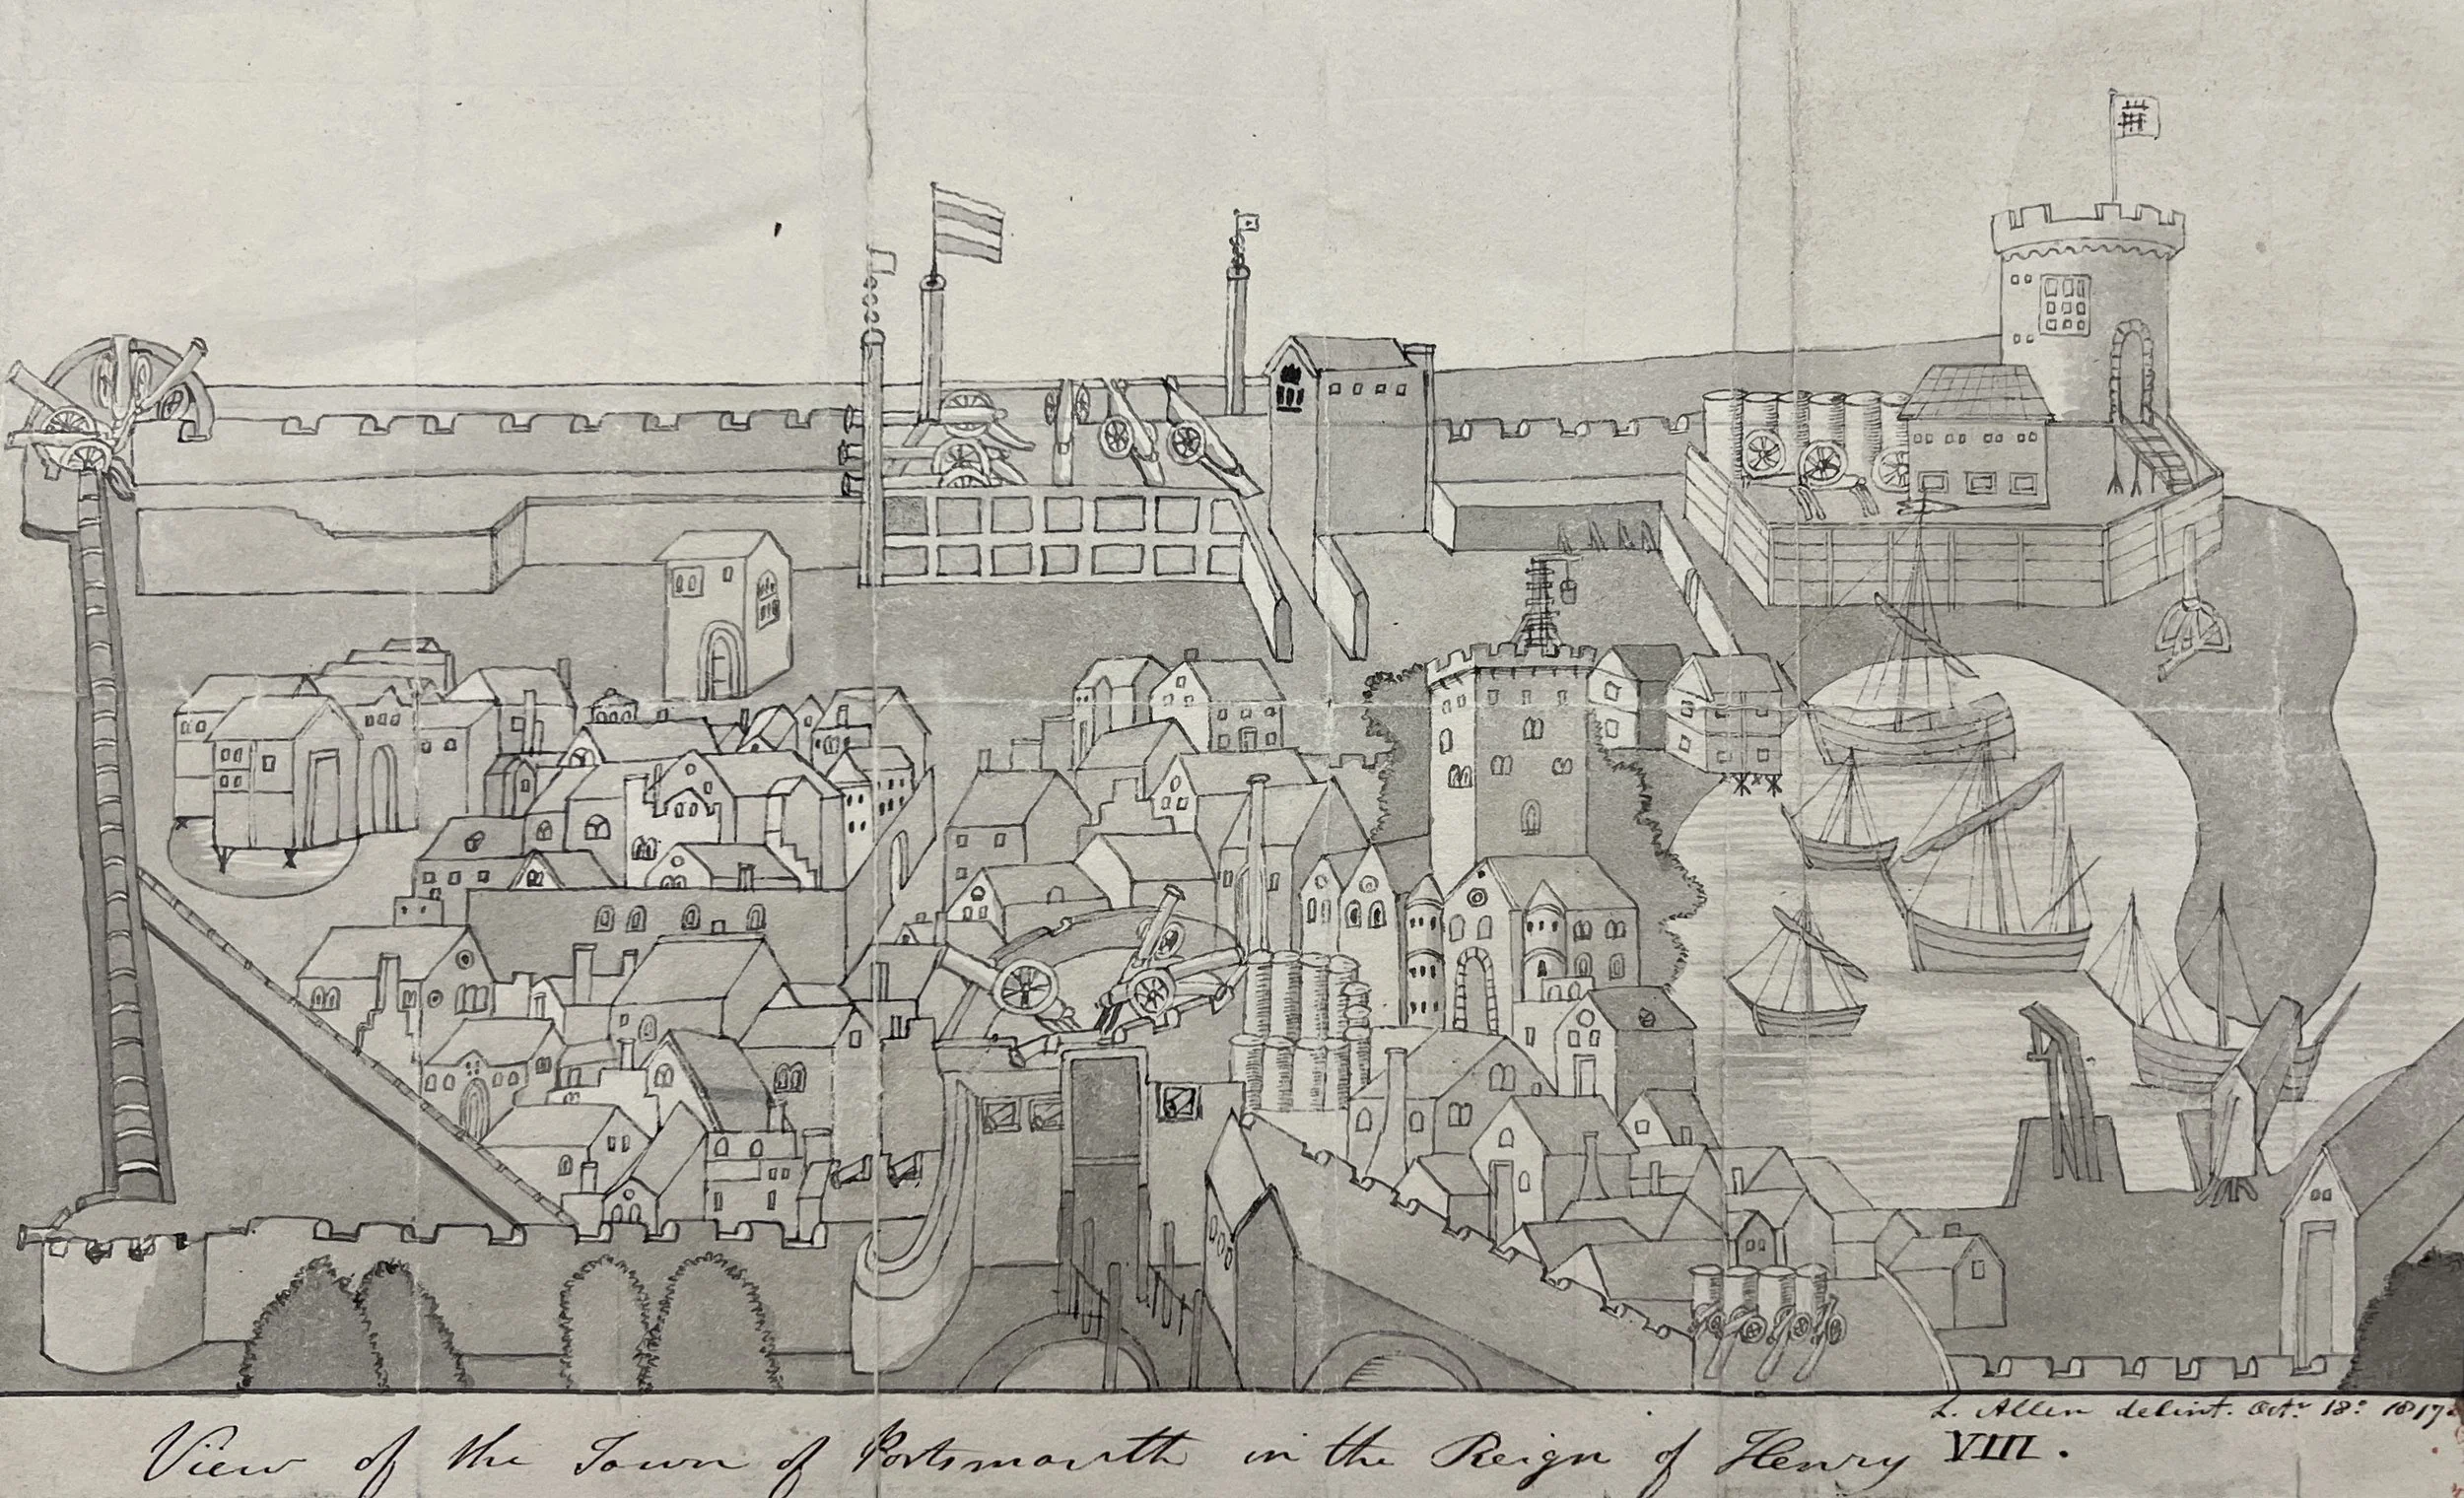 L. Allen delint. Octr 18: 1817
View of the Town of Portsmouth in the Reign of Henry VIII.